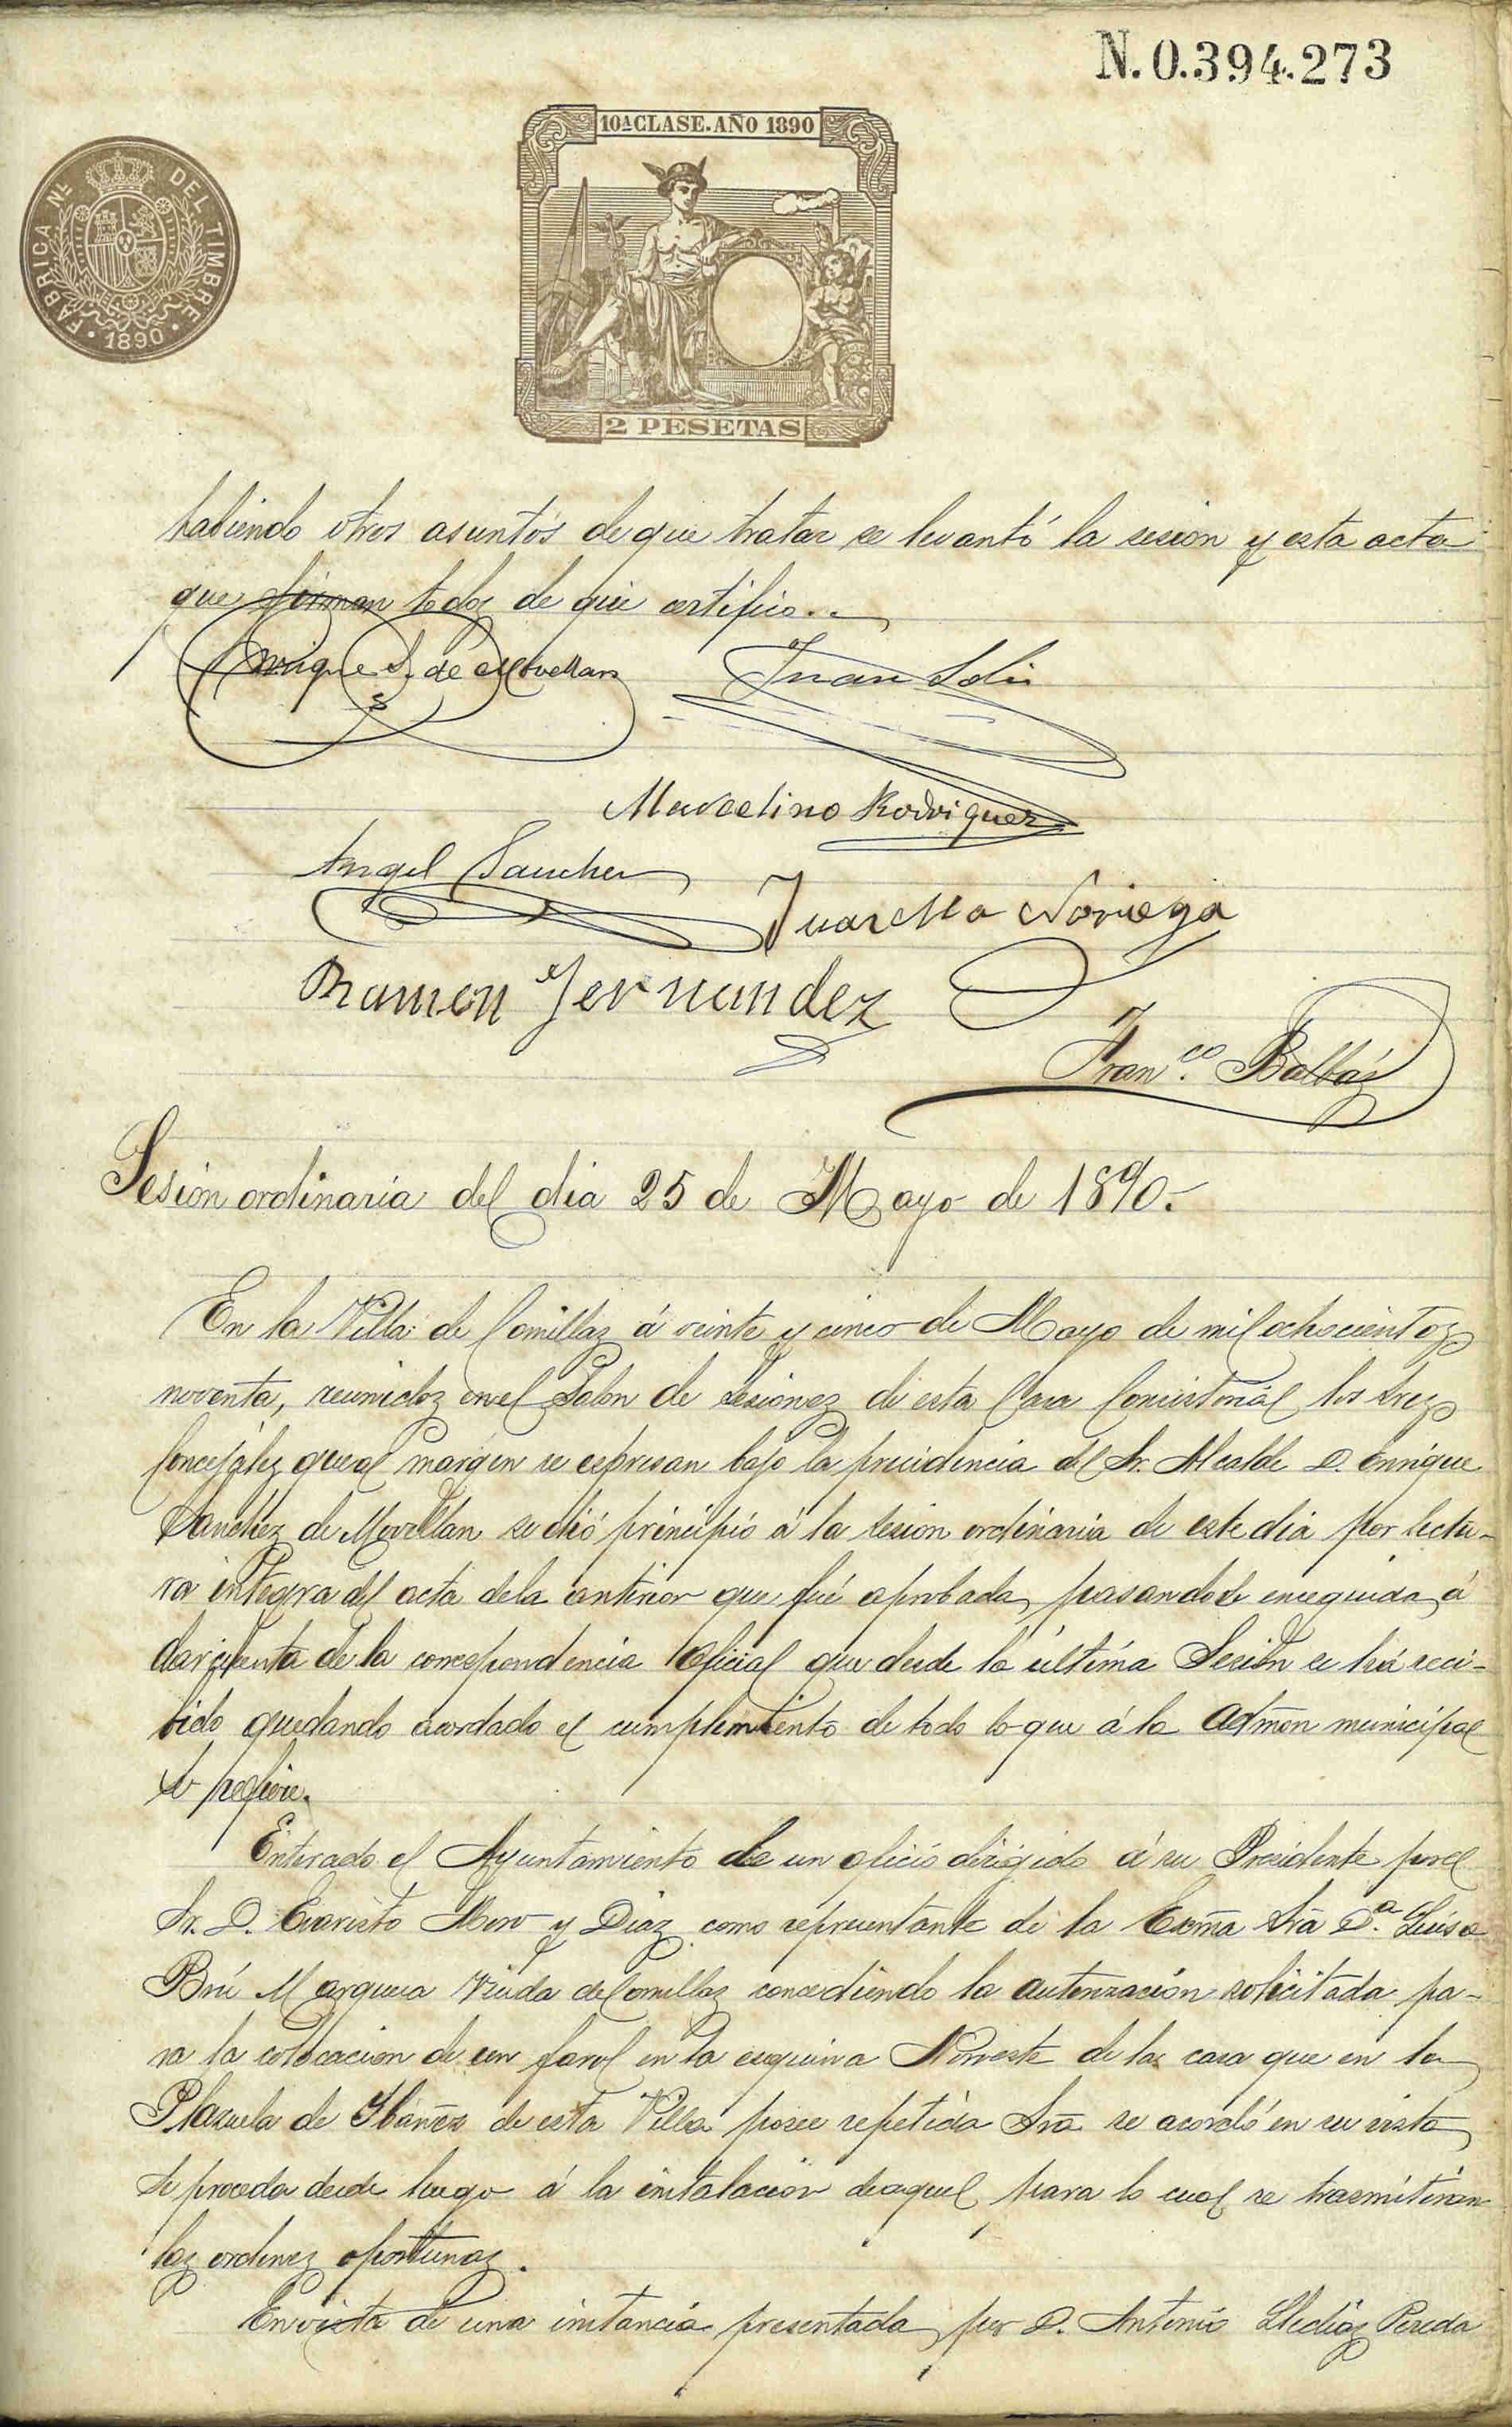 N. 0.394.273
10ª CLASE. AÑO 1890
FÁBRICA NL. DEL TIMBRE
· 1890 ·
2 PESETAS
habiendo otros asuntos de que tratar se levantó la sesion y esta acta
que firman todos de que certifico..
Enrique S. de Movellan
Juan Solis
Marcelino Rodriguez
Angel Sanchez
Juan Ma Noriega
Ramon Fernandez
Fran.co Balbás
Sesión ordinaria del dia 25 de Mayo de 1890.-
En la Villa de Comillas á veinte y cinco de Mayo de mil ochocientos
noventa, reunidos en el Salon de Sesiones de esta Casa Consistorial los Sres
Concejáles que al margen se espresan bajo la presidencia del Sr. Alcalde D. Enrique
Sanchez de Movellan se dió principio á la sesion ordinaria de este dia por lectu-
ra integra del acta de la anterior que fué aprobada, pasandose enseguida á
dar cuenta de la correspondencia Oficial que desde la última Sesión se há reci-
bido quedando acordado el cumplimiento de todo lo que á la Admon municipal
se refiere.
Enterado el Ayuntamiento de un oficio dirigido á su Presidente por el
Sr. D. Evaristo Mero y Diaz como representante de la Exma Sra Da. Luisa
Brú Marquesa Viuda de Comillas concediendo la autorización solicitada pa-
ra la colocacion de un farol en la esquina Noroeste de la casa que en la
Plazuela de Ibañez de esta Villa posee repetida Sra se acordó en su vista
se proceda desde luego á la instalacion de aquel para lo cual se trasmitiran
las ordenes oportunas.
En vista de una instancia presentada por D. Antonio Pereda